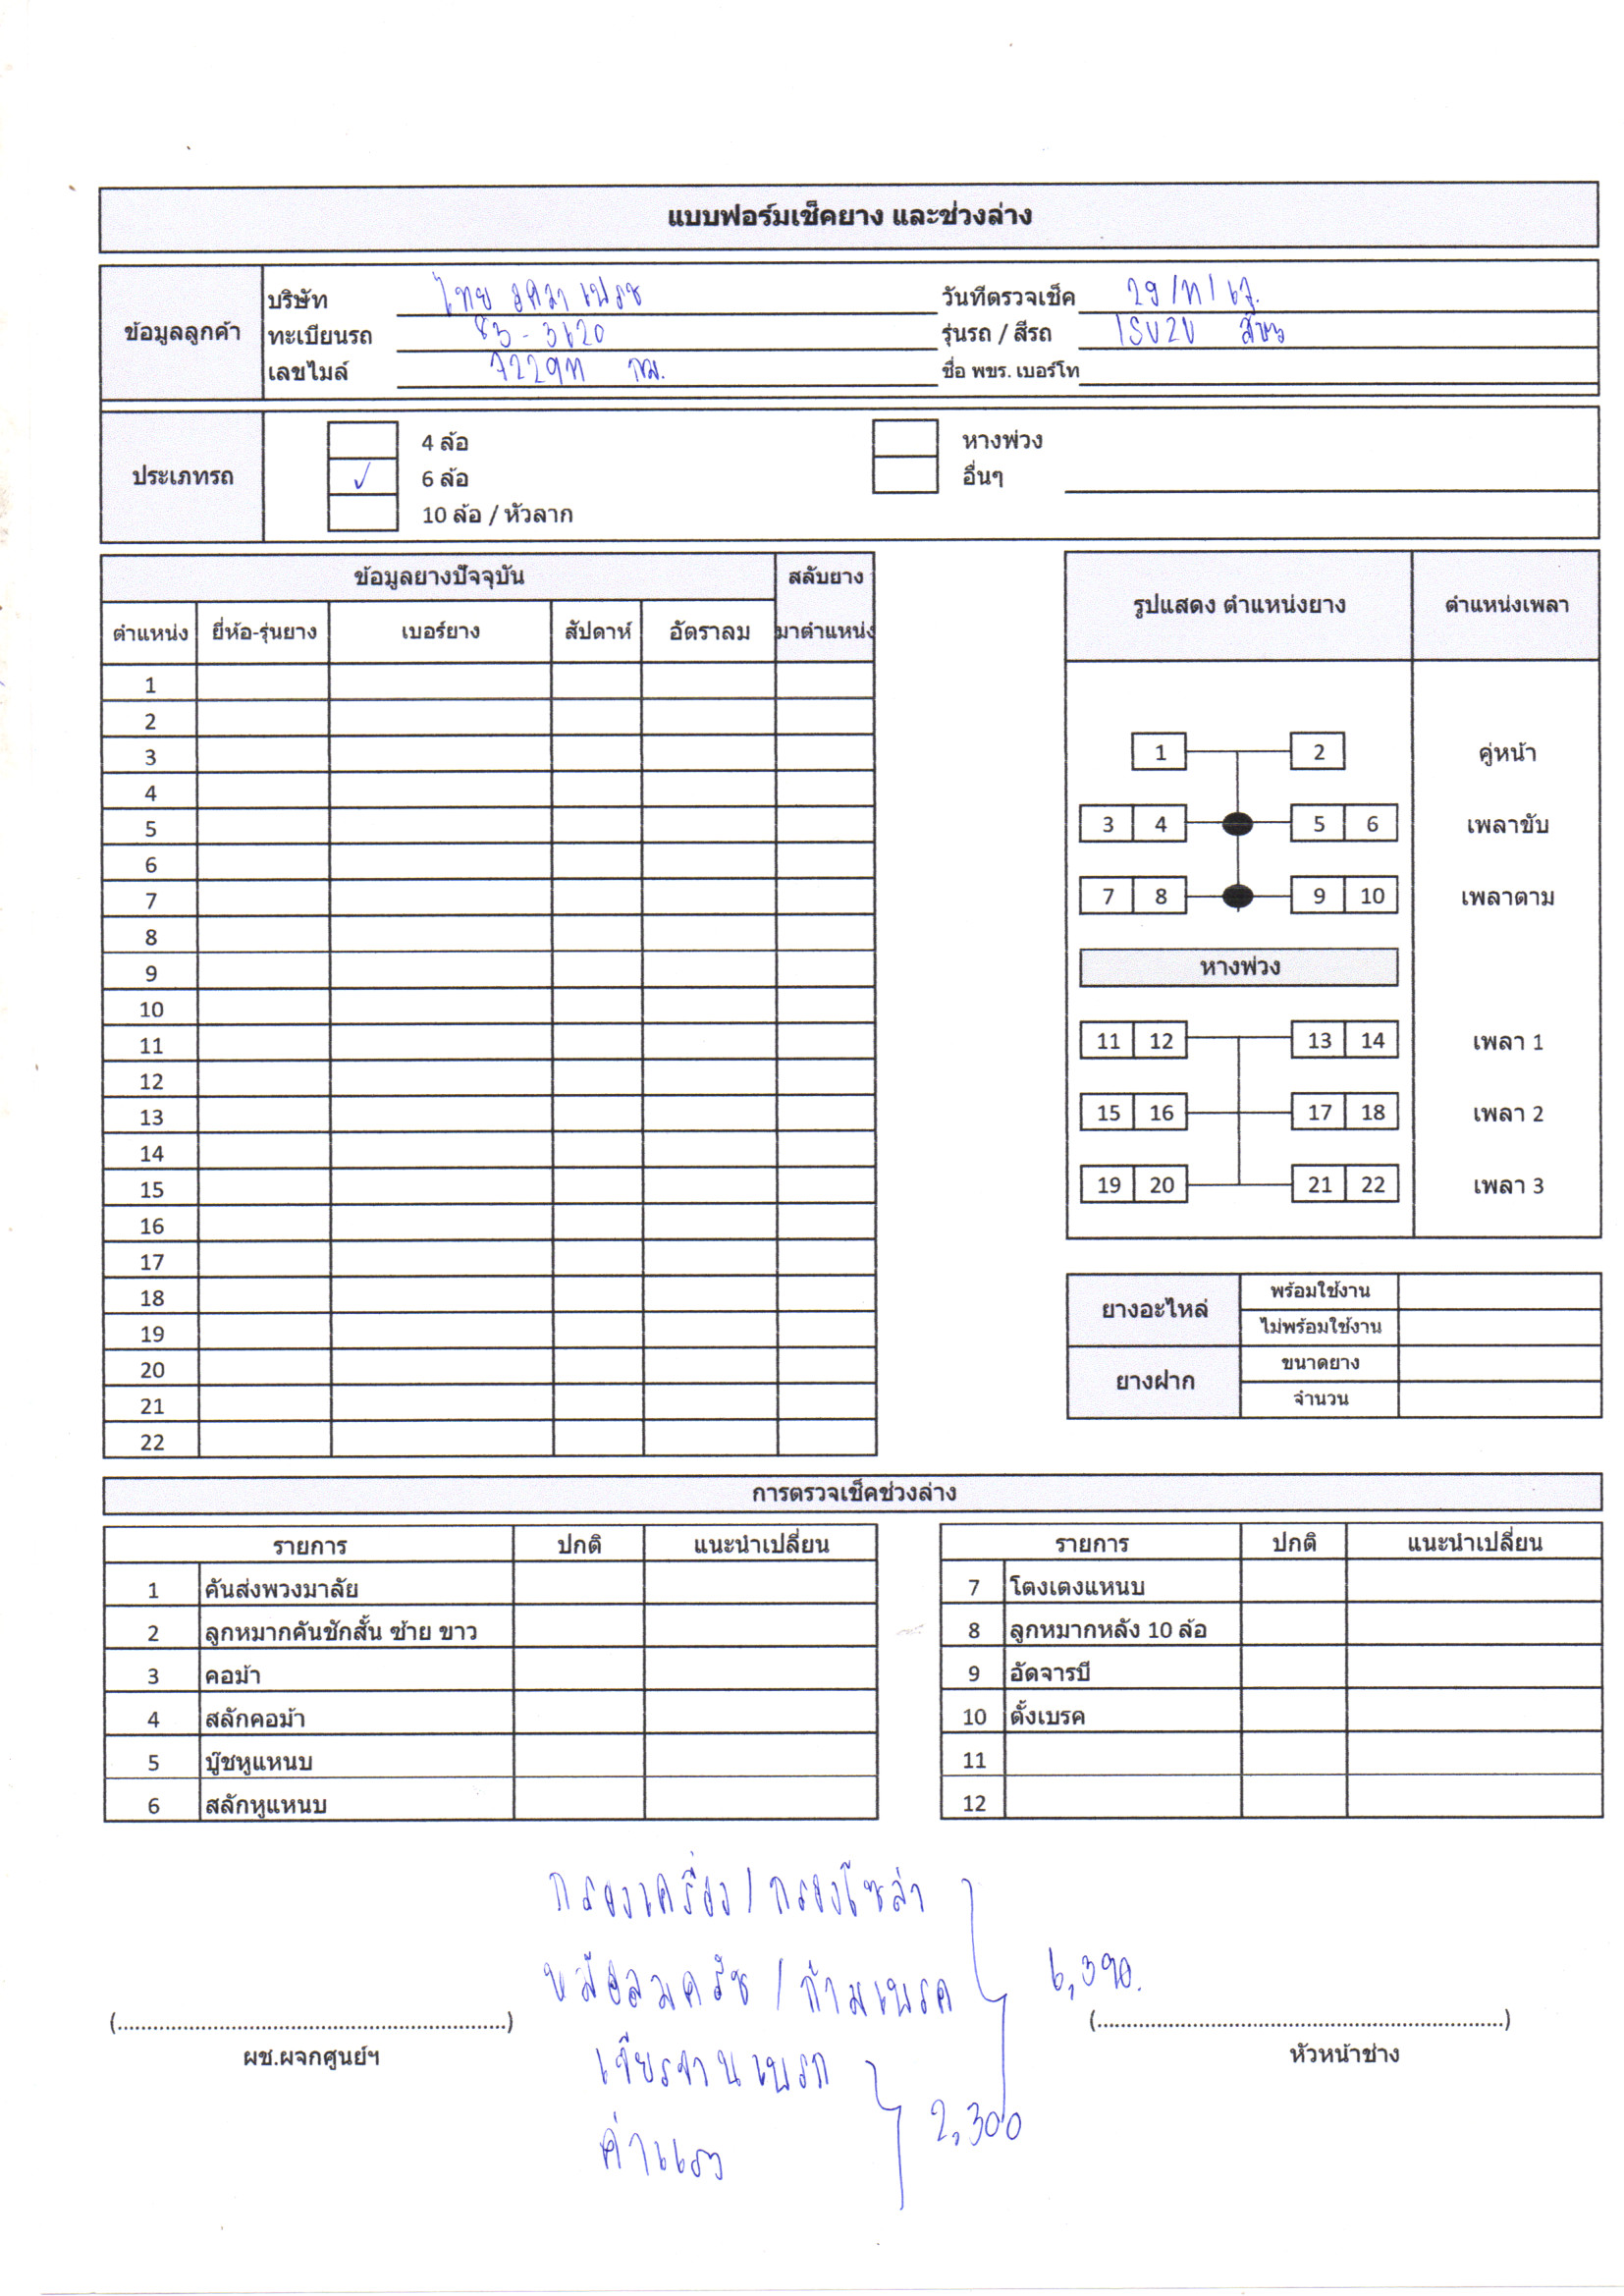 แบบฟอร์มเช็คยาง และช่วงล่าง
ข้อมูลลูกค้า
บริษัท ไทย
วันที่ตรวจเช็ค 29/
ทะเบียนรถ 83-3620
รุ่นรถ / สีรถ ISUZU
เลขไมล์ กม.
ชื่อ พขร. เบอร์โท
ประเภทรถ
4 ล้อ
หางพ่วง
✓ 6 ล้อ
อื่นๆ
10 ล้อ / หัวลาก
ข้อมูลยางปัจจุบัน สลับยาง
ตำแหน่ง ยี่ห้อ-รุ่นยาง เบอร์ยาง สัปดาห์ อัตราลม มาตำแหน่ง
1
2
3
4
5
6
7
8
9
10
11
12
13
14
15
16
17
18
19
20
21
22
รูปแสดง ตำแหน่งยาง ตำแหน่งเพลา
1 2 คู่หน้า
3 4 5 6 เพลาขับ
7 8 9 10 เพลาตาม
หางพ่วง
11 12 13 14 เพลา 1
15 16 17 18 เพลา 2
19 20 21 22 เพลา 3
ยางอะไหล่ พร้อมใช้งาน
ไม่พร้อมใช้งาน
ยางฝาก ขนาดยาง
จำนวน
การตรวจเช็คช่วงล่าง
รายการ ปกติ แนะนำเปลี่ยน
1 คันส่งพวงมาลัย
2 ลูกหมากคันชักสั้น ซ้าย ขาว
3 คอม้า
4 สลักคอม้า
5 บู๊ชหูแหนบ
6 สลักหูแหนบ
รายการ ปกติ แนะนำเปลี่ยน
7 โตงเตงแหนบ
8 ลูกหมากหลัง 10 ล้อ
9 อัดจารบี
10 ตั้งเบรค
11
12
กรองเครื่อง / กรองโซล่า
หม้อลมครัช / ก้ามเบรค 6,390.
เจียรจานเบรก
ค่าแรง 2,300
(....................................................................)
ผช.ผจกศูนย์ฯ
(....................................................................)
หัวหน้าช่าง